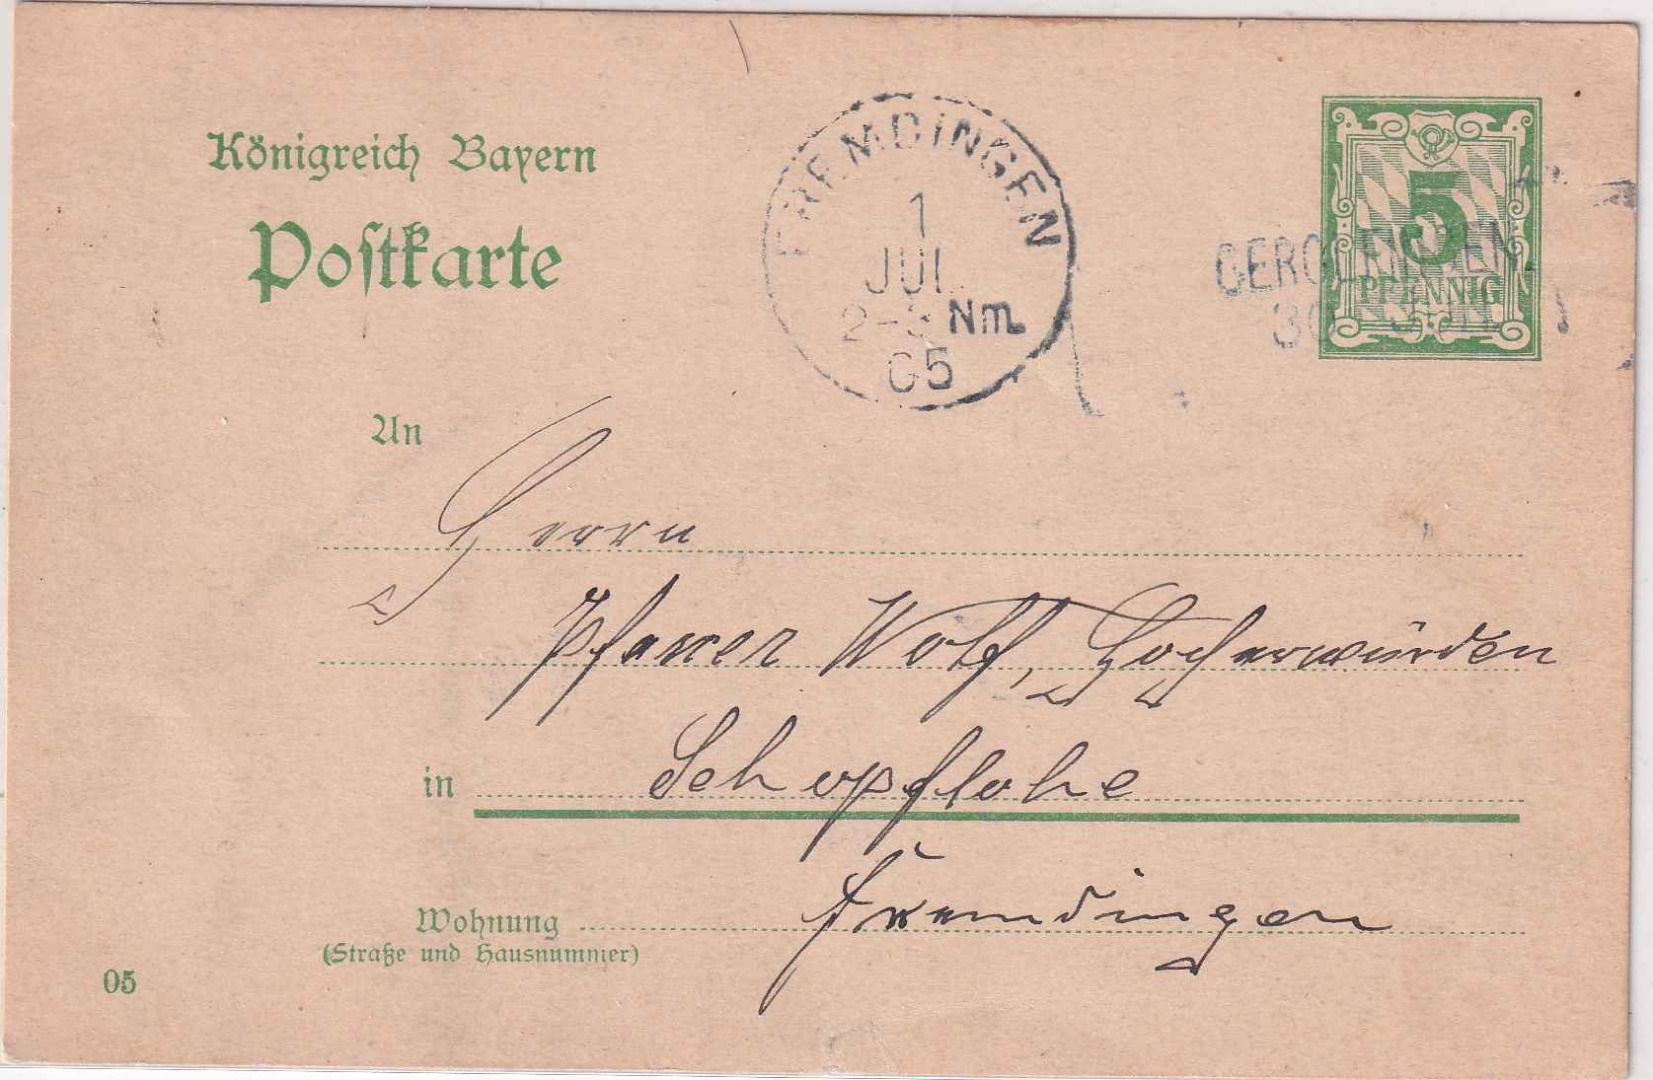 Königreich Bayern
Postkarte
FREMDINGEN
1
JUL
2-3 Nm.
05
5
PFENNIG
30
An
Herrn
Pfarrer Wolf, Hocherwürden
in Schopflohe
Fremdingen
Wohnung
(Straße und Hausnummer)
05